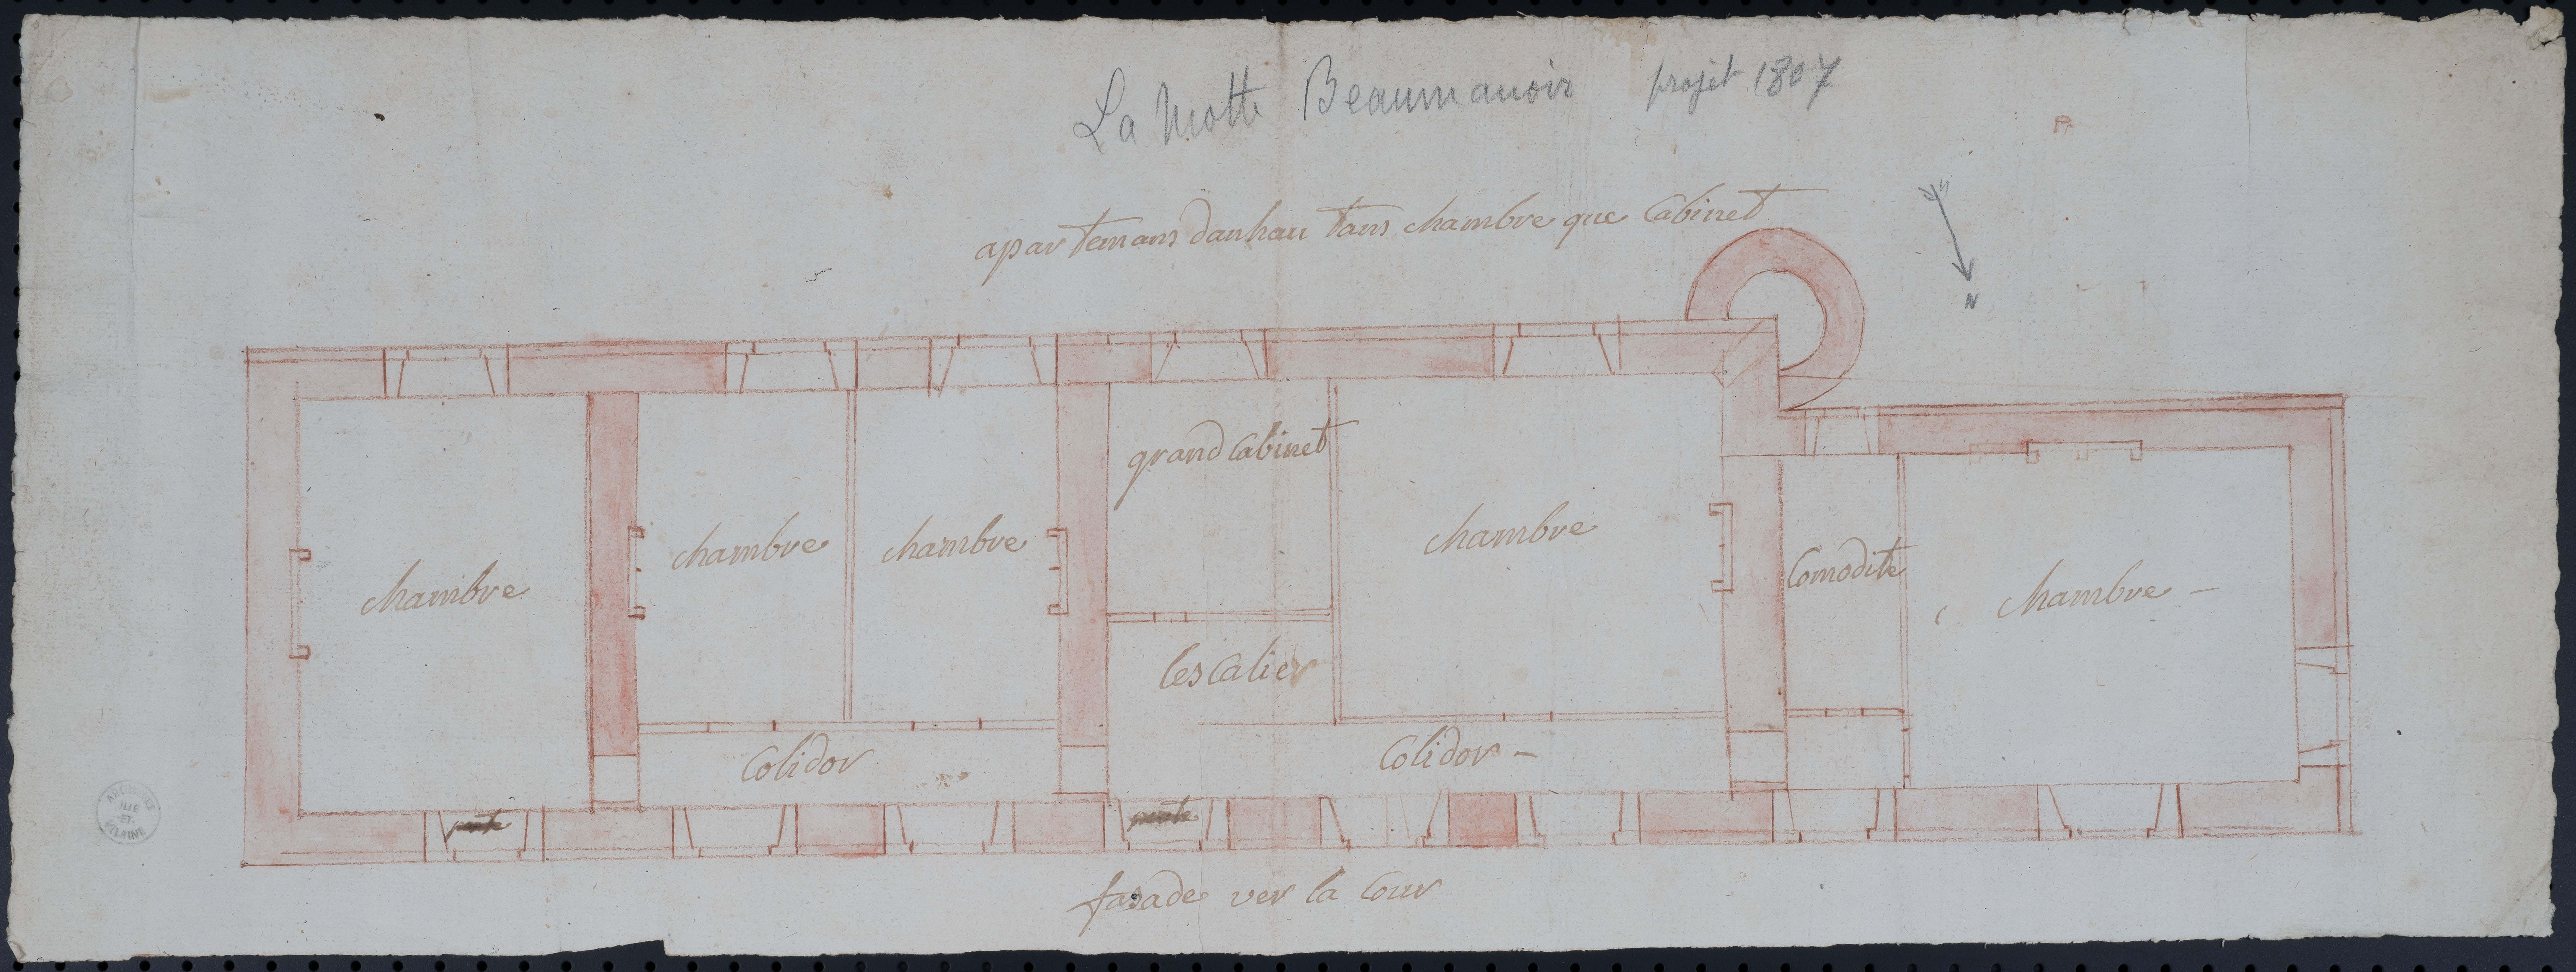 La Motte Beaumanoir projet 1807
P.
apartemans danhau tans chambre que Cabinet
N
grand Cabinet
chambre
chambre
chambre
chambre
Comodite
chambre
lescalier
Colidor
Colidor
porte
porte
fasade ver la Cour
ARCHIVES
ILLE
-ET-
VILAINE